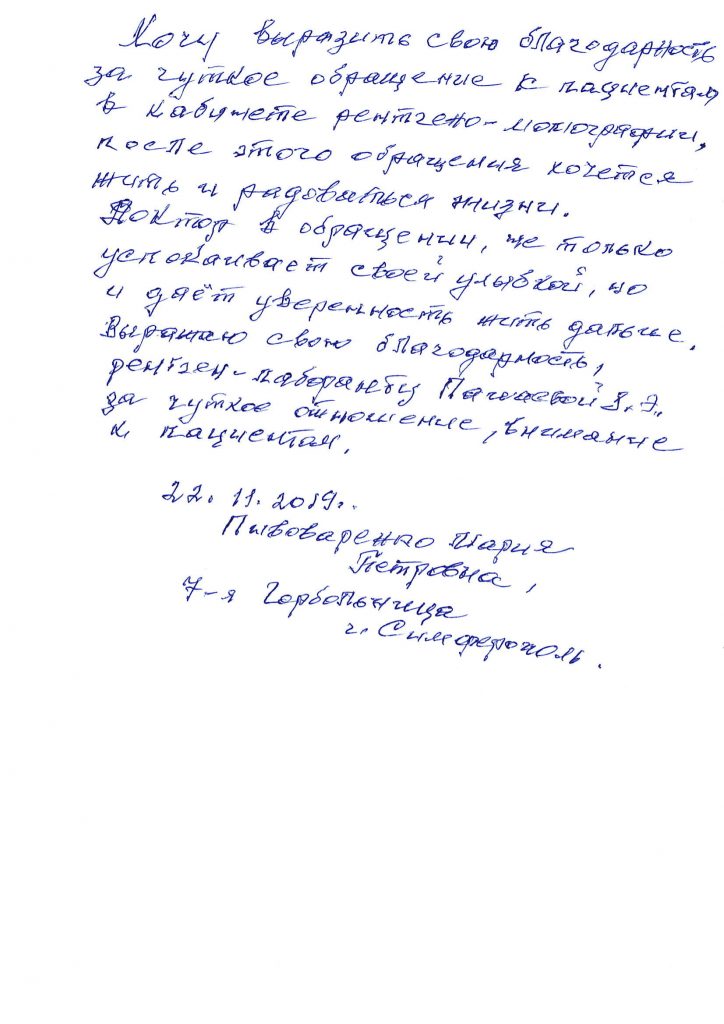 Хочу выразить свою благодарность
за чуткое обращение к пациентам
в кабинете рентгено-монографии,
после этого обращения хочется
жить и радоваться жизни.
Доктор в обращении, не только
успокаивает своей улыбкой, но
и даёт уверенность жить дальше.
Выражаю свою благодарность,
рентген-лаборанту З. Э.,
за чуткое отношение, внимание
к пациентам.
22. 11. 2019г.
Пивоваренко Мария
Петровна,
7-я Горбольница
г. Симферополь.